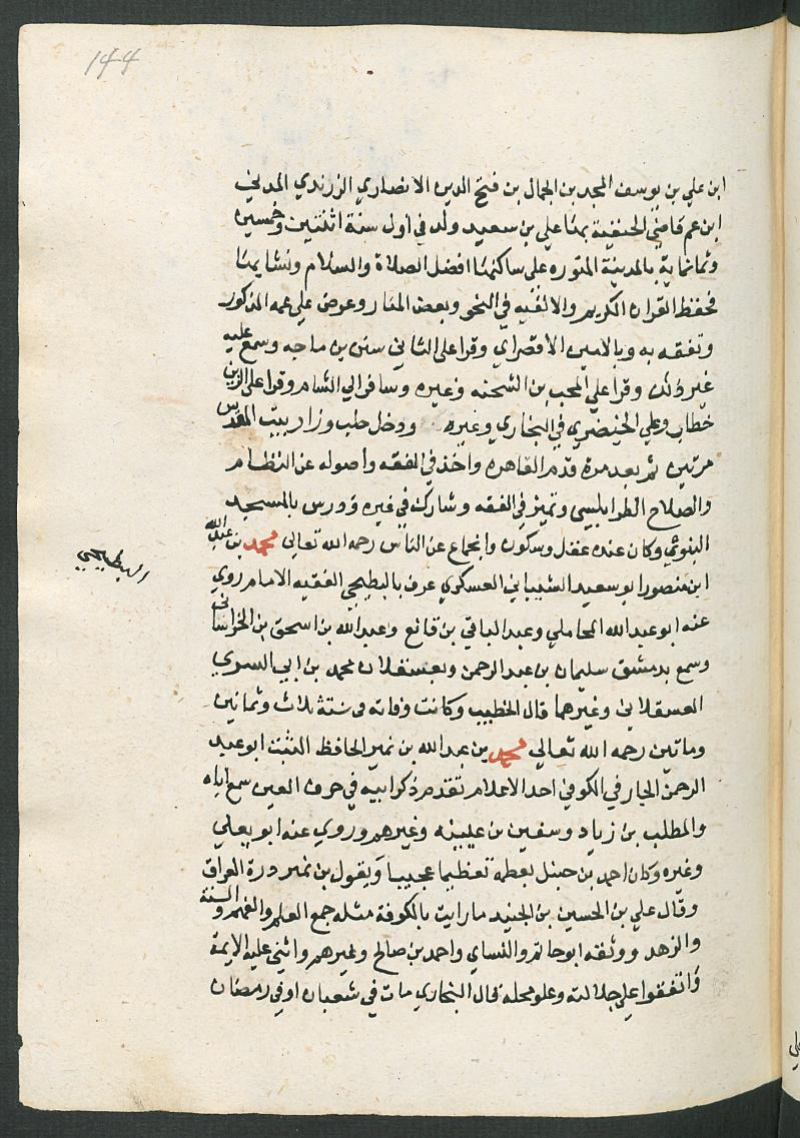 144
ابن علي بن يوسف المجد بن الجمال بن فتح الدين الانصاري الزرندي المدني
ابن عم قاضي الحنفية بها علي بن سعيد ولد في اول سنة اثنتين وخمسين
وثمانماية بالمدينة المنوره على ساكنها افضل الصلاة والسلام ونشا بها
فحفظ القران الكريم والالفيه في النحو وبعض المنار وعرض على عمه المذكور
وتفقه به وبالامين الاقصراي وقرا على الثاني سنن بن ماجه وسمع عليه
غير ذلك وقرا على المحب بن الشحنه وغيره وسافر الي الشام وقرا على الزين
خطاب وعلي الخيضري في البخاري وغيره ودخل حلب وزار بيت المقدس
مرتين ثم بعد مدة قدم القاهره واخذ في الفقه واصوله عن النظام
والصلاح الطرابلسي وتميز في الفقه وشارك في غيره ودرس بالمسجد
النبوي وكان عنده عقل وسكون وانجماع عن الناس رحمه الله تعالى محمد بن عبد الله
البطيحي
ابن منصور ابو سعيد الشيباني العسكري عرف بالبطيحي الفقيه الامام روي
عنه ابو عبد الله المحاملي وعبد الباقي بن قانع وعبد الله بن اسحق بن الخراساني
وسمع بدمشق سليمان بن عبد الرحمن وبعسقلان محمد بن ابي السري
العسقلاني وغيرهما قال الخطيب وكانت وفاته في سنة ثلاث وثمانين
وماتين رحمه الله تعالي محمد بن عبد الله بن نمير الحافظ الثبت ابو عبد
الرحمن الخارفي الكوفي احد الاعلام تقدم ذكر ابيه في حرف العين سمع اباه
والمطلب بن زياد وسفين بن عيينه وغيرهم وروي عنه ابو يعلي
وغيره وكان احمد بن حنبل يعظمه تعظيما عجيبا ويقول بن نمير درة العراق
وقال علي بن الحسين بن الجنيد ما رايت بالكوفة مثله جمع العلم والفهم والسنة
والزهد ووثقه ابو حاتم والنساي واحمد بن صالح وغيرهم واثني عليه الايمة
واتفقوا على جلالته وعلو محله قال البخاري مات في شعبان او في رمضان